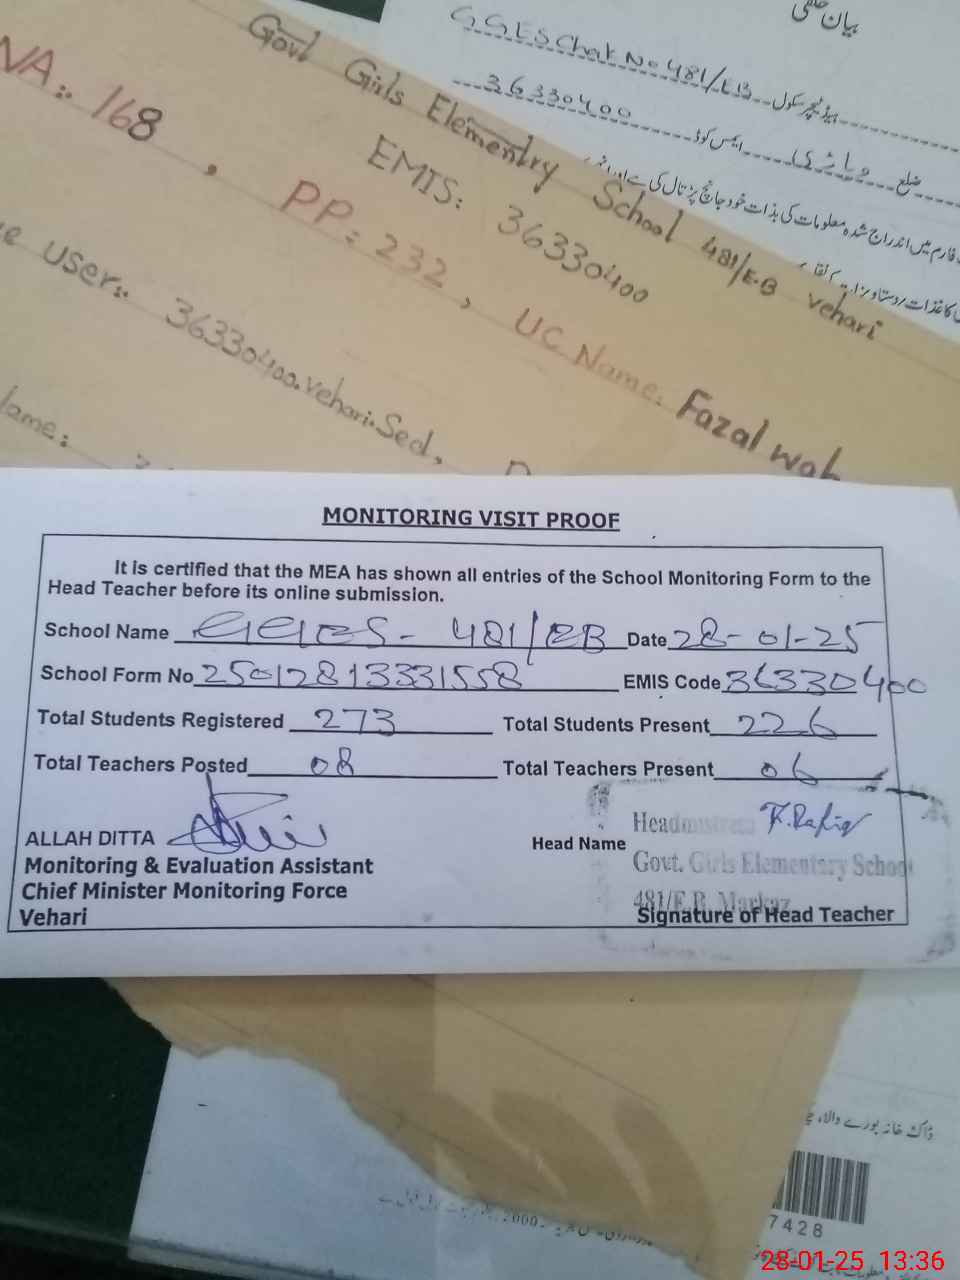 بیان حلفی
GGES Chak No 481/EB ہیڈ ٹیچر سکول
36330400 ایمس کوڈ
وہاڑی ضلع
فارم میں اندراج شدہ معلومات کی بذات خود جانچ پڑتال کی ہے اور
Govt Girls Elementry School 481/E.B vehari
EMIS: 36330400
NA: 168, PP: 232, UC Name: Fazal wah
user: 36330400.vehari.Sed,
MONITORING VISIT PROOF
It is certified that the MEA has shown all entries of the School Monitoring Form to the
Head Teacher before its online submission.
School Name GGES- 481/EB Date 28-01-25
School Form No 25012813331558 EMIS Code 36330400
Total Students Registered 273 Total Students Present 226
Total Teachers Posted 08 Total Teachers Present 06
ALLAH DITTA
Head Name
Headmistress
Monitoring & Evaluation Assistant
Govt. Girls Elementary School
Chief Minister Monitoring Force
481/E.B. Markaz
Vehari
Signature of Head Teacher
ڈاک خانہ بورے والا،
7428
28-01-25 13:36